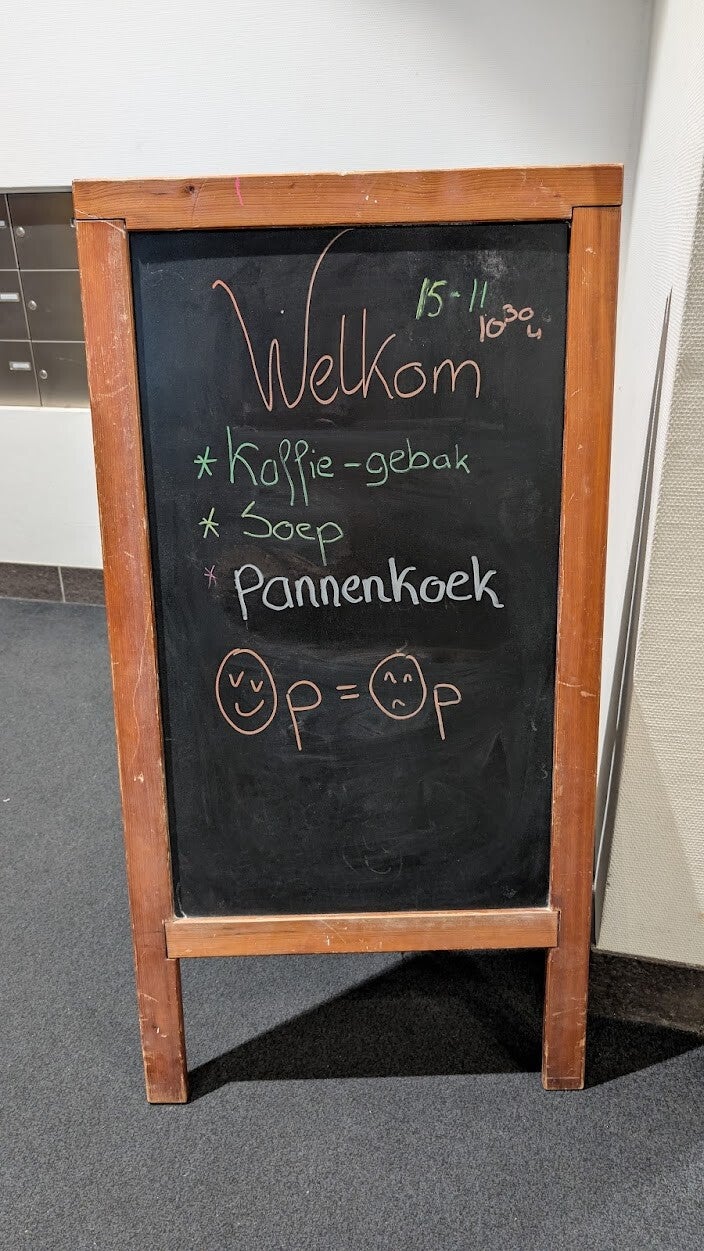 15-11
10³⁰ u
Welkom
* Koffie-gebak
* Soep
* Pannenkoek
Op = Op